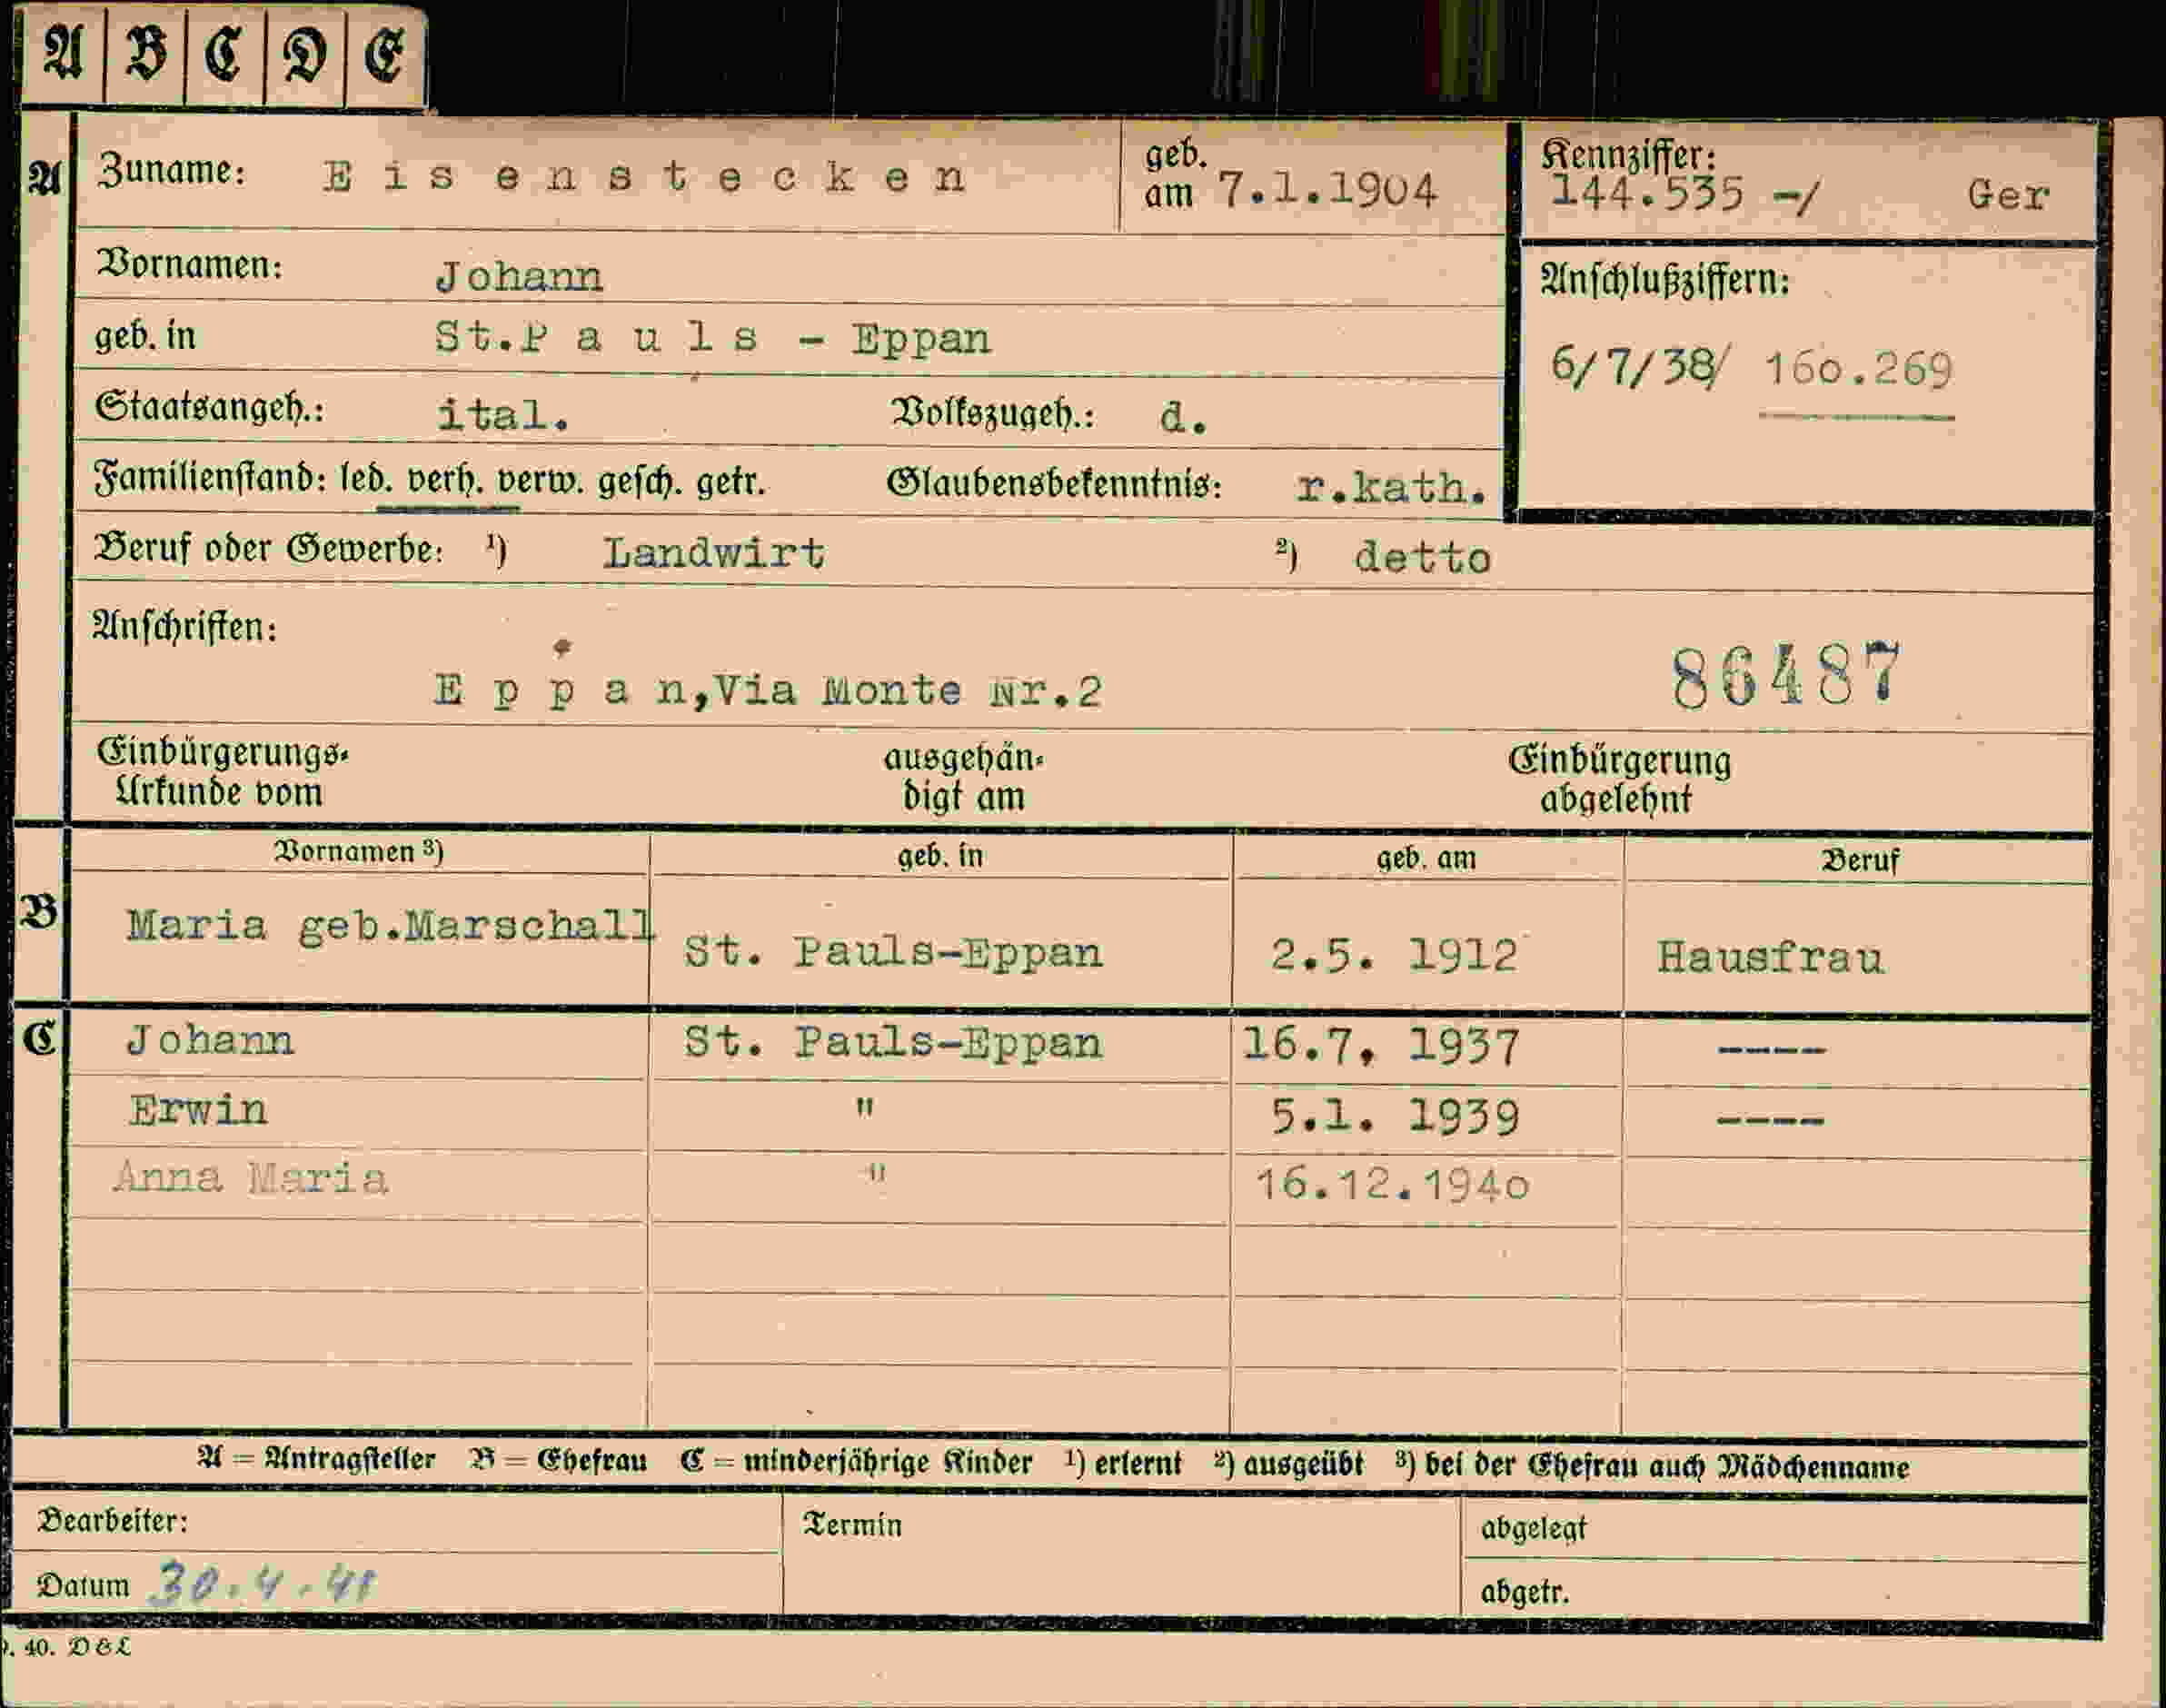 A B C D E
A Zuname: Eisenstecken geb. am 7.1.1904 Kennziffer: 144.535 -/ Ger
Vornamen: Johann
Anschlußziffern:
geb. in St.Pauls - Eppan
6/7/38/ 16o.269
Staatsangeh.: ital. Volkszugeh.: d.
Familienstand: led. verh. verw. gesch. getr. Glaubensbekenntnis: r.kath.
Beruf oder Gewerbe: ¹) Landwirt ²) detto
Anschriften:
Eppan,Via Monte Nr.2 86487
Einbürgerungs- ausgehän- Einbürgerung
Urkunde vom digt am abgelehnt
Vornamen ³) geb. in geb. am Beruf
B Maria geb.Marschall St. Pauls-Eppan 2.5. 1912 Hausfrau
C Johann St. Pauls-Eppan 16.7. 1937 ----
Erwin " 5.1. 1939 ----
Anna Maria " 16.12.194o
A = Antragsteller B = Ehefrau C = minderjährige Kinder ¹) erlernt ²) ausgeübt ³) bei der Ehefrau auch Mädchenname
Bearbeiter: Termin abgelegt
Datum 30.4.41 abgetr.
. 40. D&L